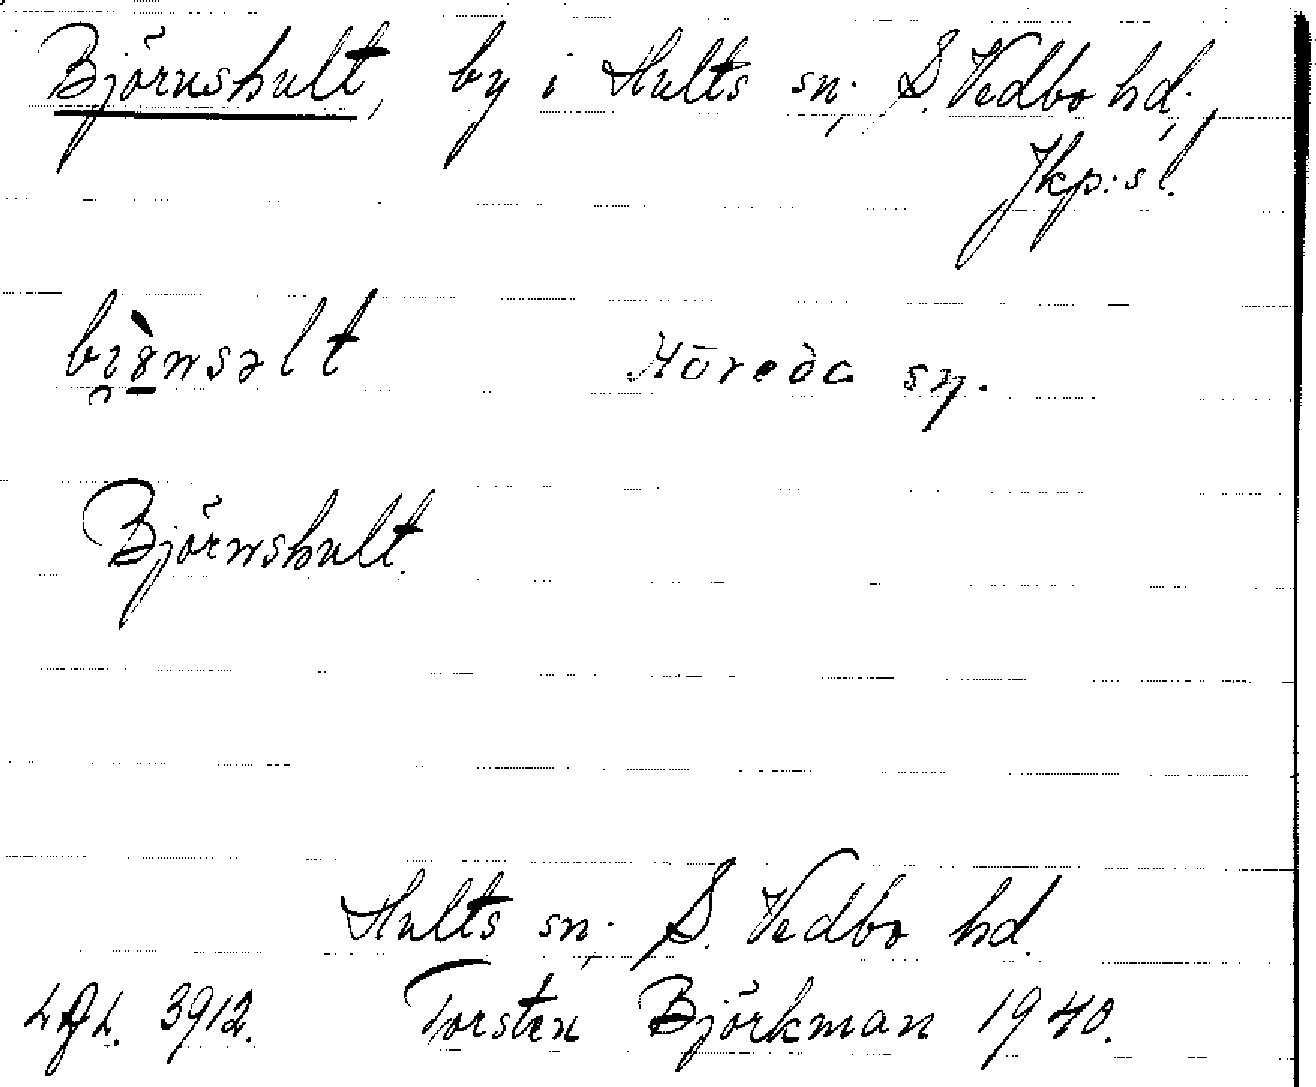 Björnshult, by i Hults sn., S. Vedbo hd.,
Jkp:s l.
Höreda sn.
Björnshult.
Hults sn., S. Vedbo hd.
3912. Torsten Björkman 1940.